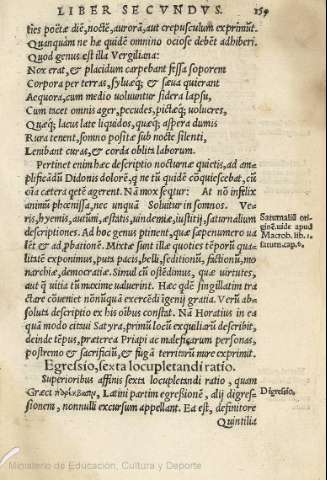 LIBER SECVNDVS. 159
ties poëtæ diē, noctē, aurorā, aut crepusculum exprimūt.
Quanquàm ne hæ quidē omnino ociosè debēt adhiberi.
Quod genus est illa Vergiliana:
Nox erat, & placidum carpebant fessa soporem
Corpora per terras, syluæq; & sæua quierant
Aequora, cum medio voluuntur sidera lapsu,
Cum tacet omnis ager, pecudes, pictæq; volucres,
Quæq; lacus latè liquidos, quæq; aspera dumis
Rura tenent, somno positæ sub nocte silenti,
Lenibant curas, & corda oblita laborum.
Pertinet enim hæc descriptio nocturnæ quietis, ad am-
plificādū Didonis dolorē, q ne tū quidē cōquiescebat, cū
cūa cætera quetē agerent. Nā mox seqtur: At nō infelix
animū phœnissa, nec unquā Soluitur in somnos. Ve-
ris, hyemis, autūni, æstatis, uindemiæ, iustitij, saturnalium
descriptiones. Ad hoc genus ptinent, quæ sæpenumero ua
lēt & ad pbationē. Mixtæ sunt illæ quoties tēporū qua-
litatē exponimus, puta pacis, belli, seditionū, factionū, mo
narchiæ, democratiæ. Simul cū ostēdimus, quæ uirtutes,
aut q uitia tū maximè ualuerint. Hæc qdē singillatim tra
ctare cōueniet nōnūquā exercēdi ingenij gratia. Verū ab-
soluta descriptio ex his oibus constat. Nā Horatius in ea
quā modò citaui Satyra, primū locū exquiliarū describit,
deinde tēpus, præterea Priapi ac maleficarum personas,
postremo & sacrificiū, & fugā territarū mire exprimit.
Egressio, sexta locupletandi ratio.
Superioribus affinis sexta locupletandi ratio, quam
Græci παρέκβασιν, Latini partim egressionē, alij digres-
sionem, nonnulli excursum appellant. Ea est, definitore
Quintilia
Saturnaliū ori
ginē uide apud
Macrob. lib. 1.
satur. cap. 6.
Digressio.
Ministerio de Educación, Cultura y Deporte